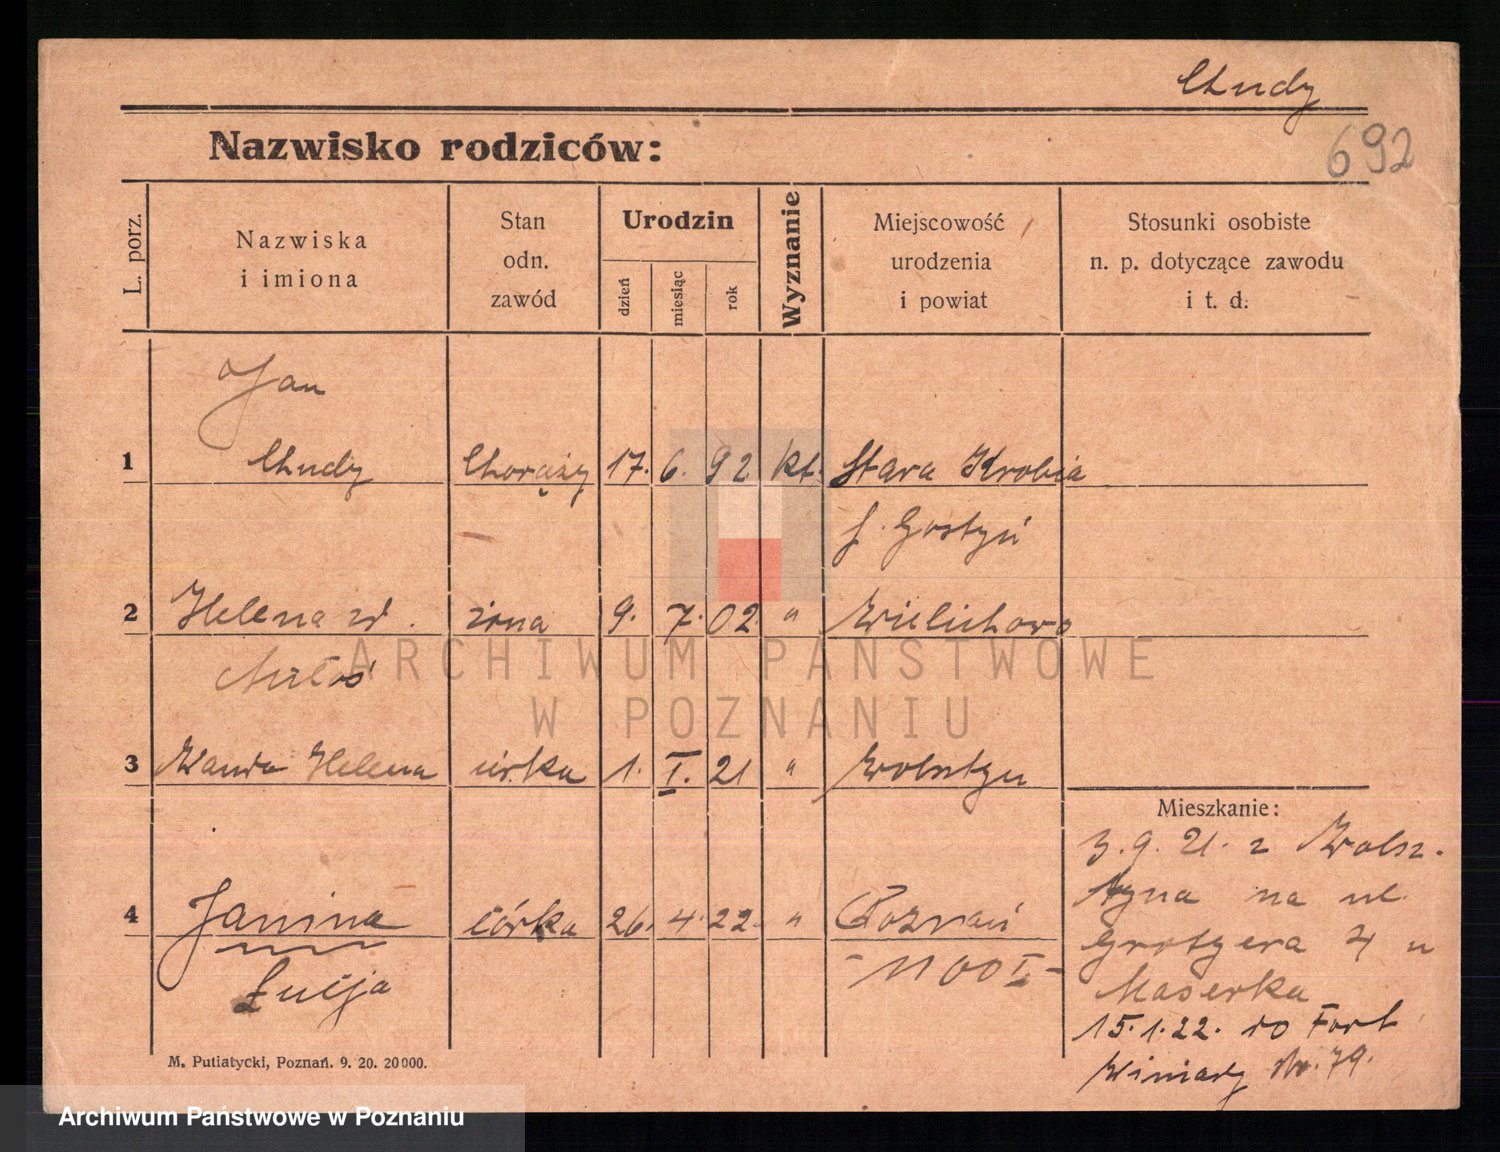 Chudy
692
Nazwisko rodziców:
L. porz.
Nazwiska
i imiona
Stan
odn.
zawód
Urodzin
dzień
miesiąc
rok
Wyznanie
Miejscowość
urodzenia
i powiat
Stosunki osobiste
n. p. dotyczące zawodu
i t. d.
Jan
1 Chudy Chorąży 17. 6. 92 kt. Stara Krobia
p. Gostyń
2 Helena zd. żona 9. 7. 02 " Wielichowo
3 Wanda Helena córka 1. I. 21 " Wolsztyn
Mieszkanie:
3.9.21. z Wolsz-
tyna na ul.
4 Janina córka 26. 4. 22. " Poznań
Grottgera 4 u
- 1100 I -
Łucja
Maserka
15.1.22. do Fort
Winiary Nr. 79.
M. Putiatycki, Poznań. 9. 20. 20000.
ARCHIWUM PAŃSTWOWE
W POZNANIU
Archiwum Państwowe w Poznaniu